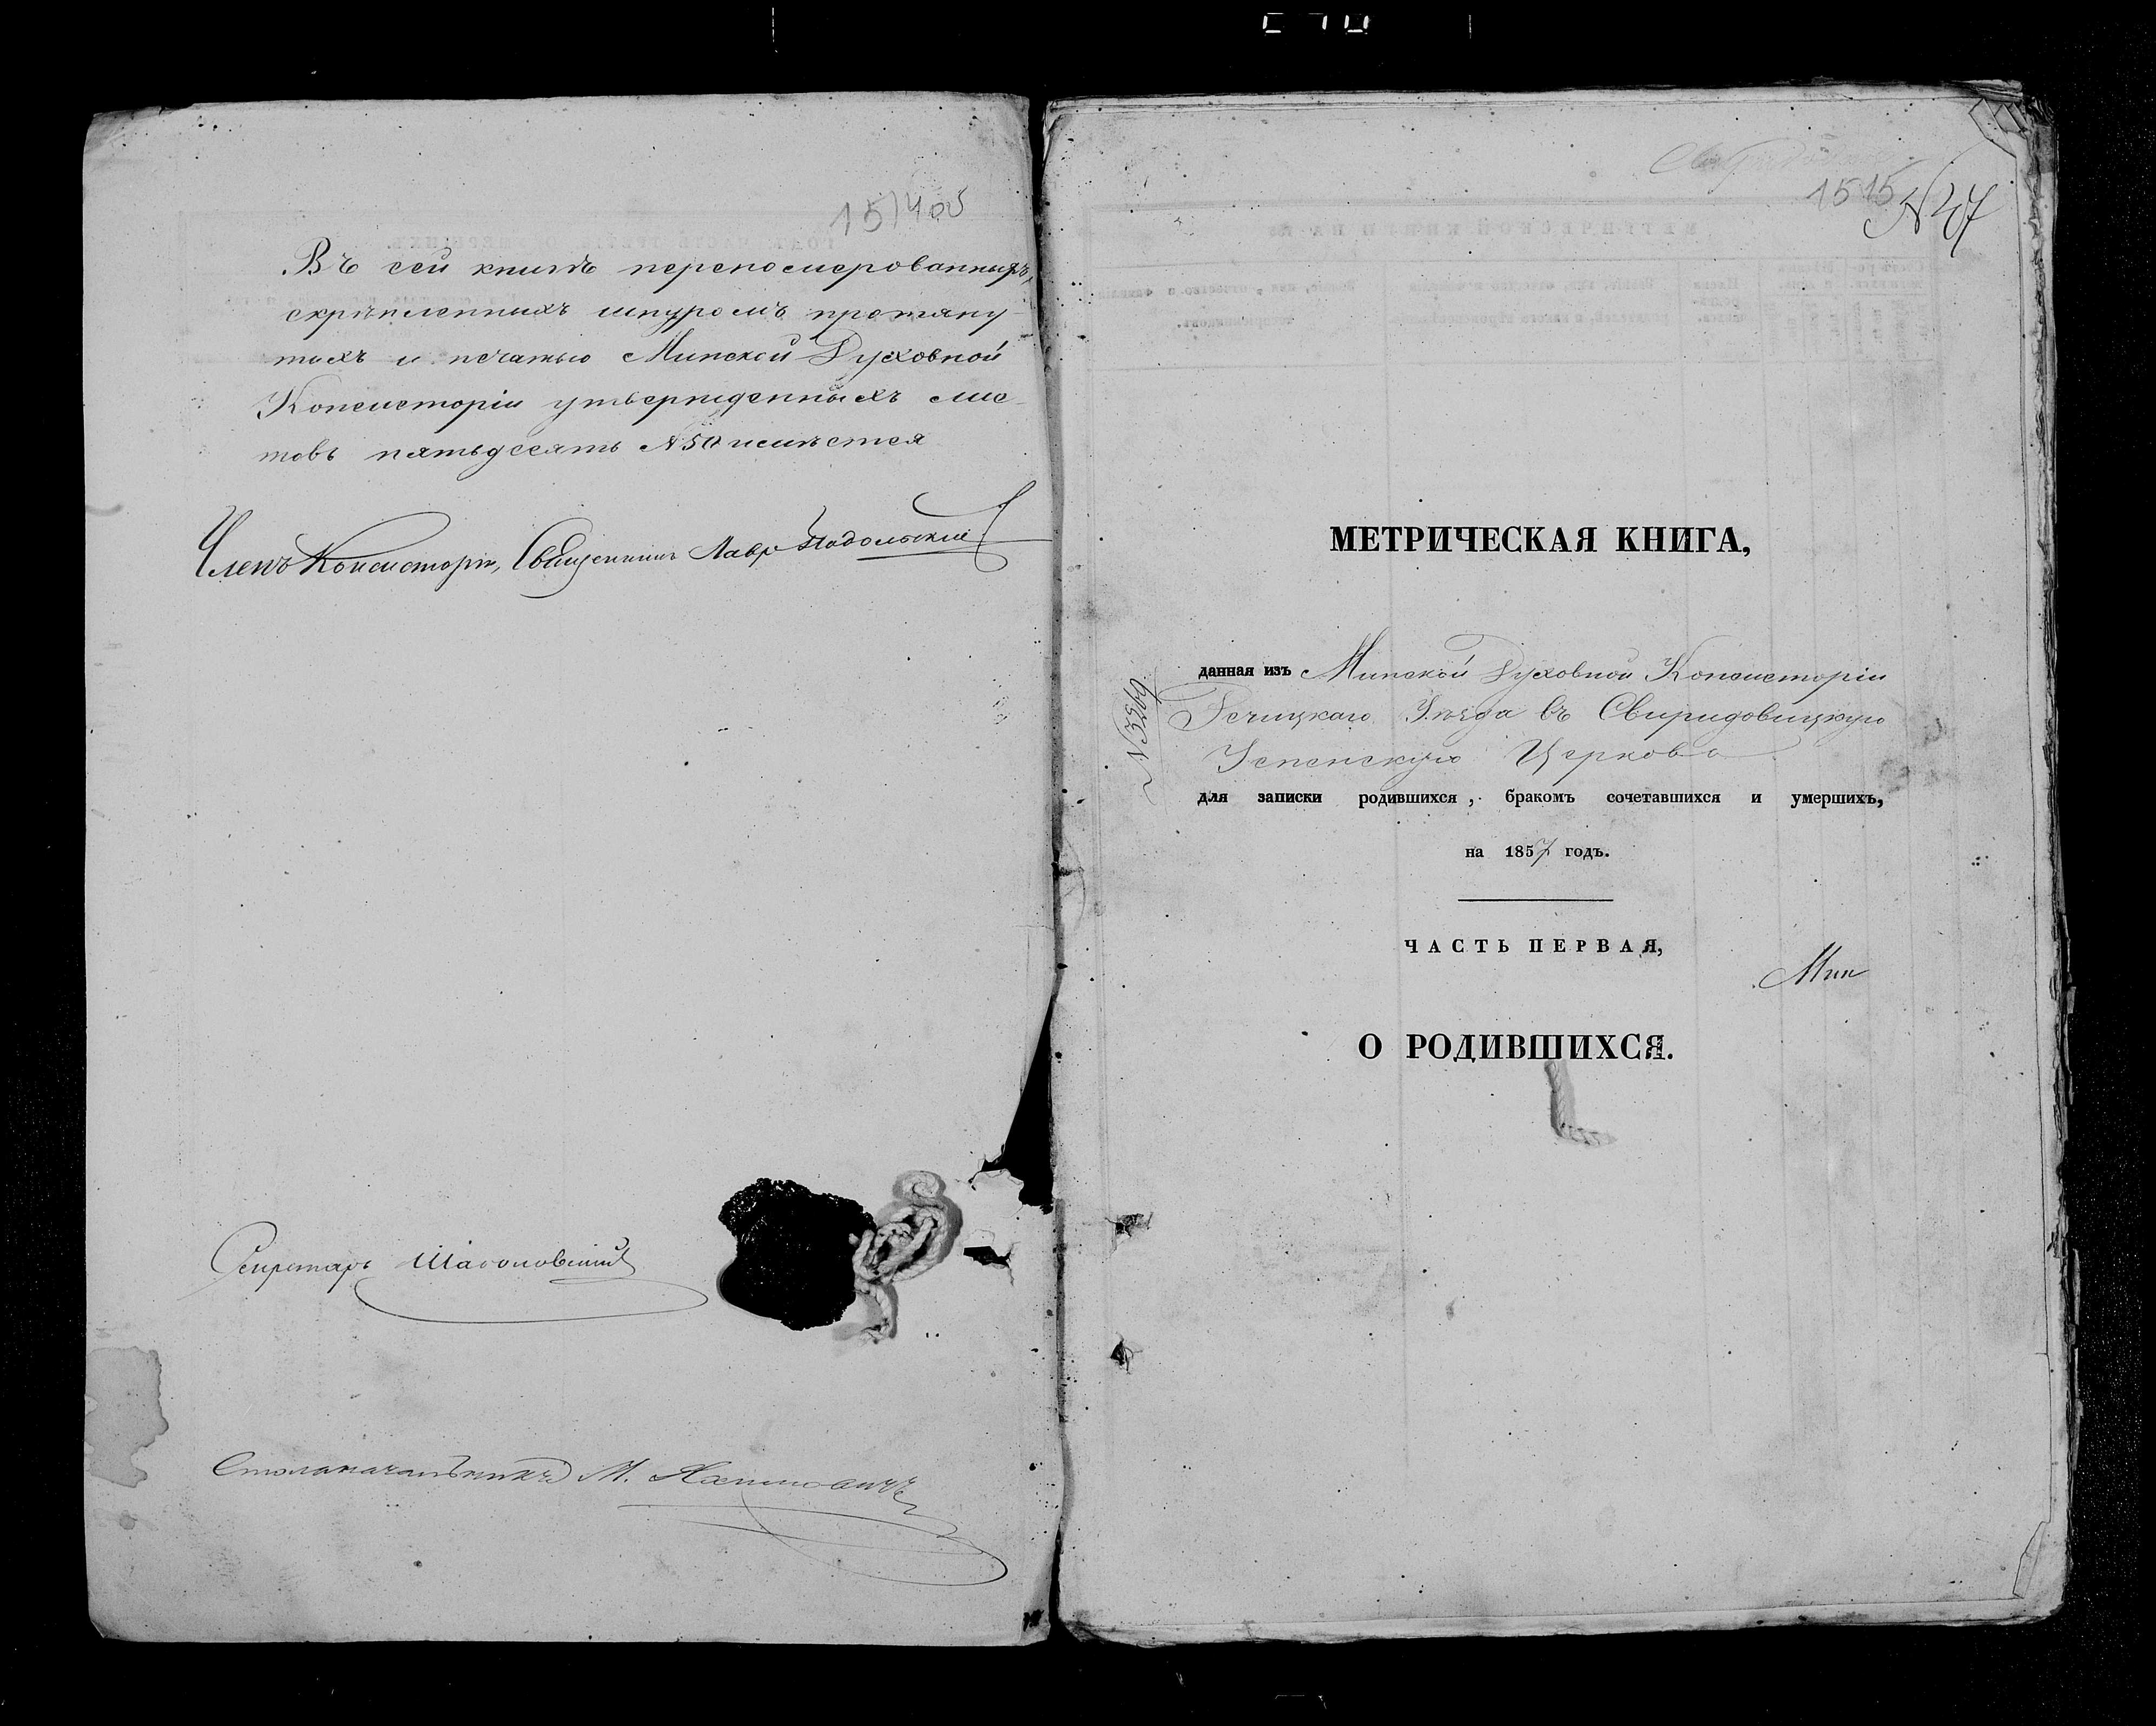 15)400
Въ сей книгѣ перепомерованныхъ,
скрѣпленныхъ шнуромъ протяну-
тыхъ и печатью Минской Духовной
Консисторіи утвержденныхъ лис-
товъ пятьдесятъ №50 имѣется
Членъ Консисторіи, Священникъ Лавръ Подольскій
Секретарь
Столоначальникъ М.
1515
№ 47
МЕТРИЧЕСКАЯ КНИГА,
данная изъ Минской Духовной Консисторіи
Речицкаго Уѣзда въ Свиридовицкую
Успенскую Церковь
№ 3269.
для записки родившихся, бракомъ сочетавшихся и умершихъ,
на 1857 годъ.
ЧАСТЬ ПЕРВАЯ,
Мин
О РОДИВШИХСЯ.